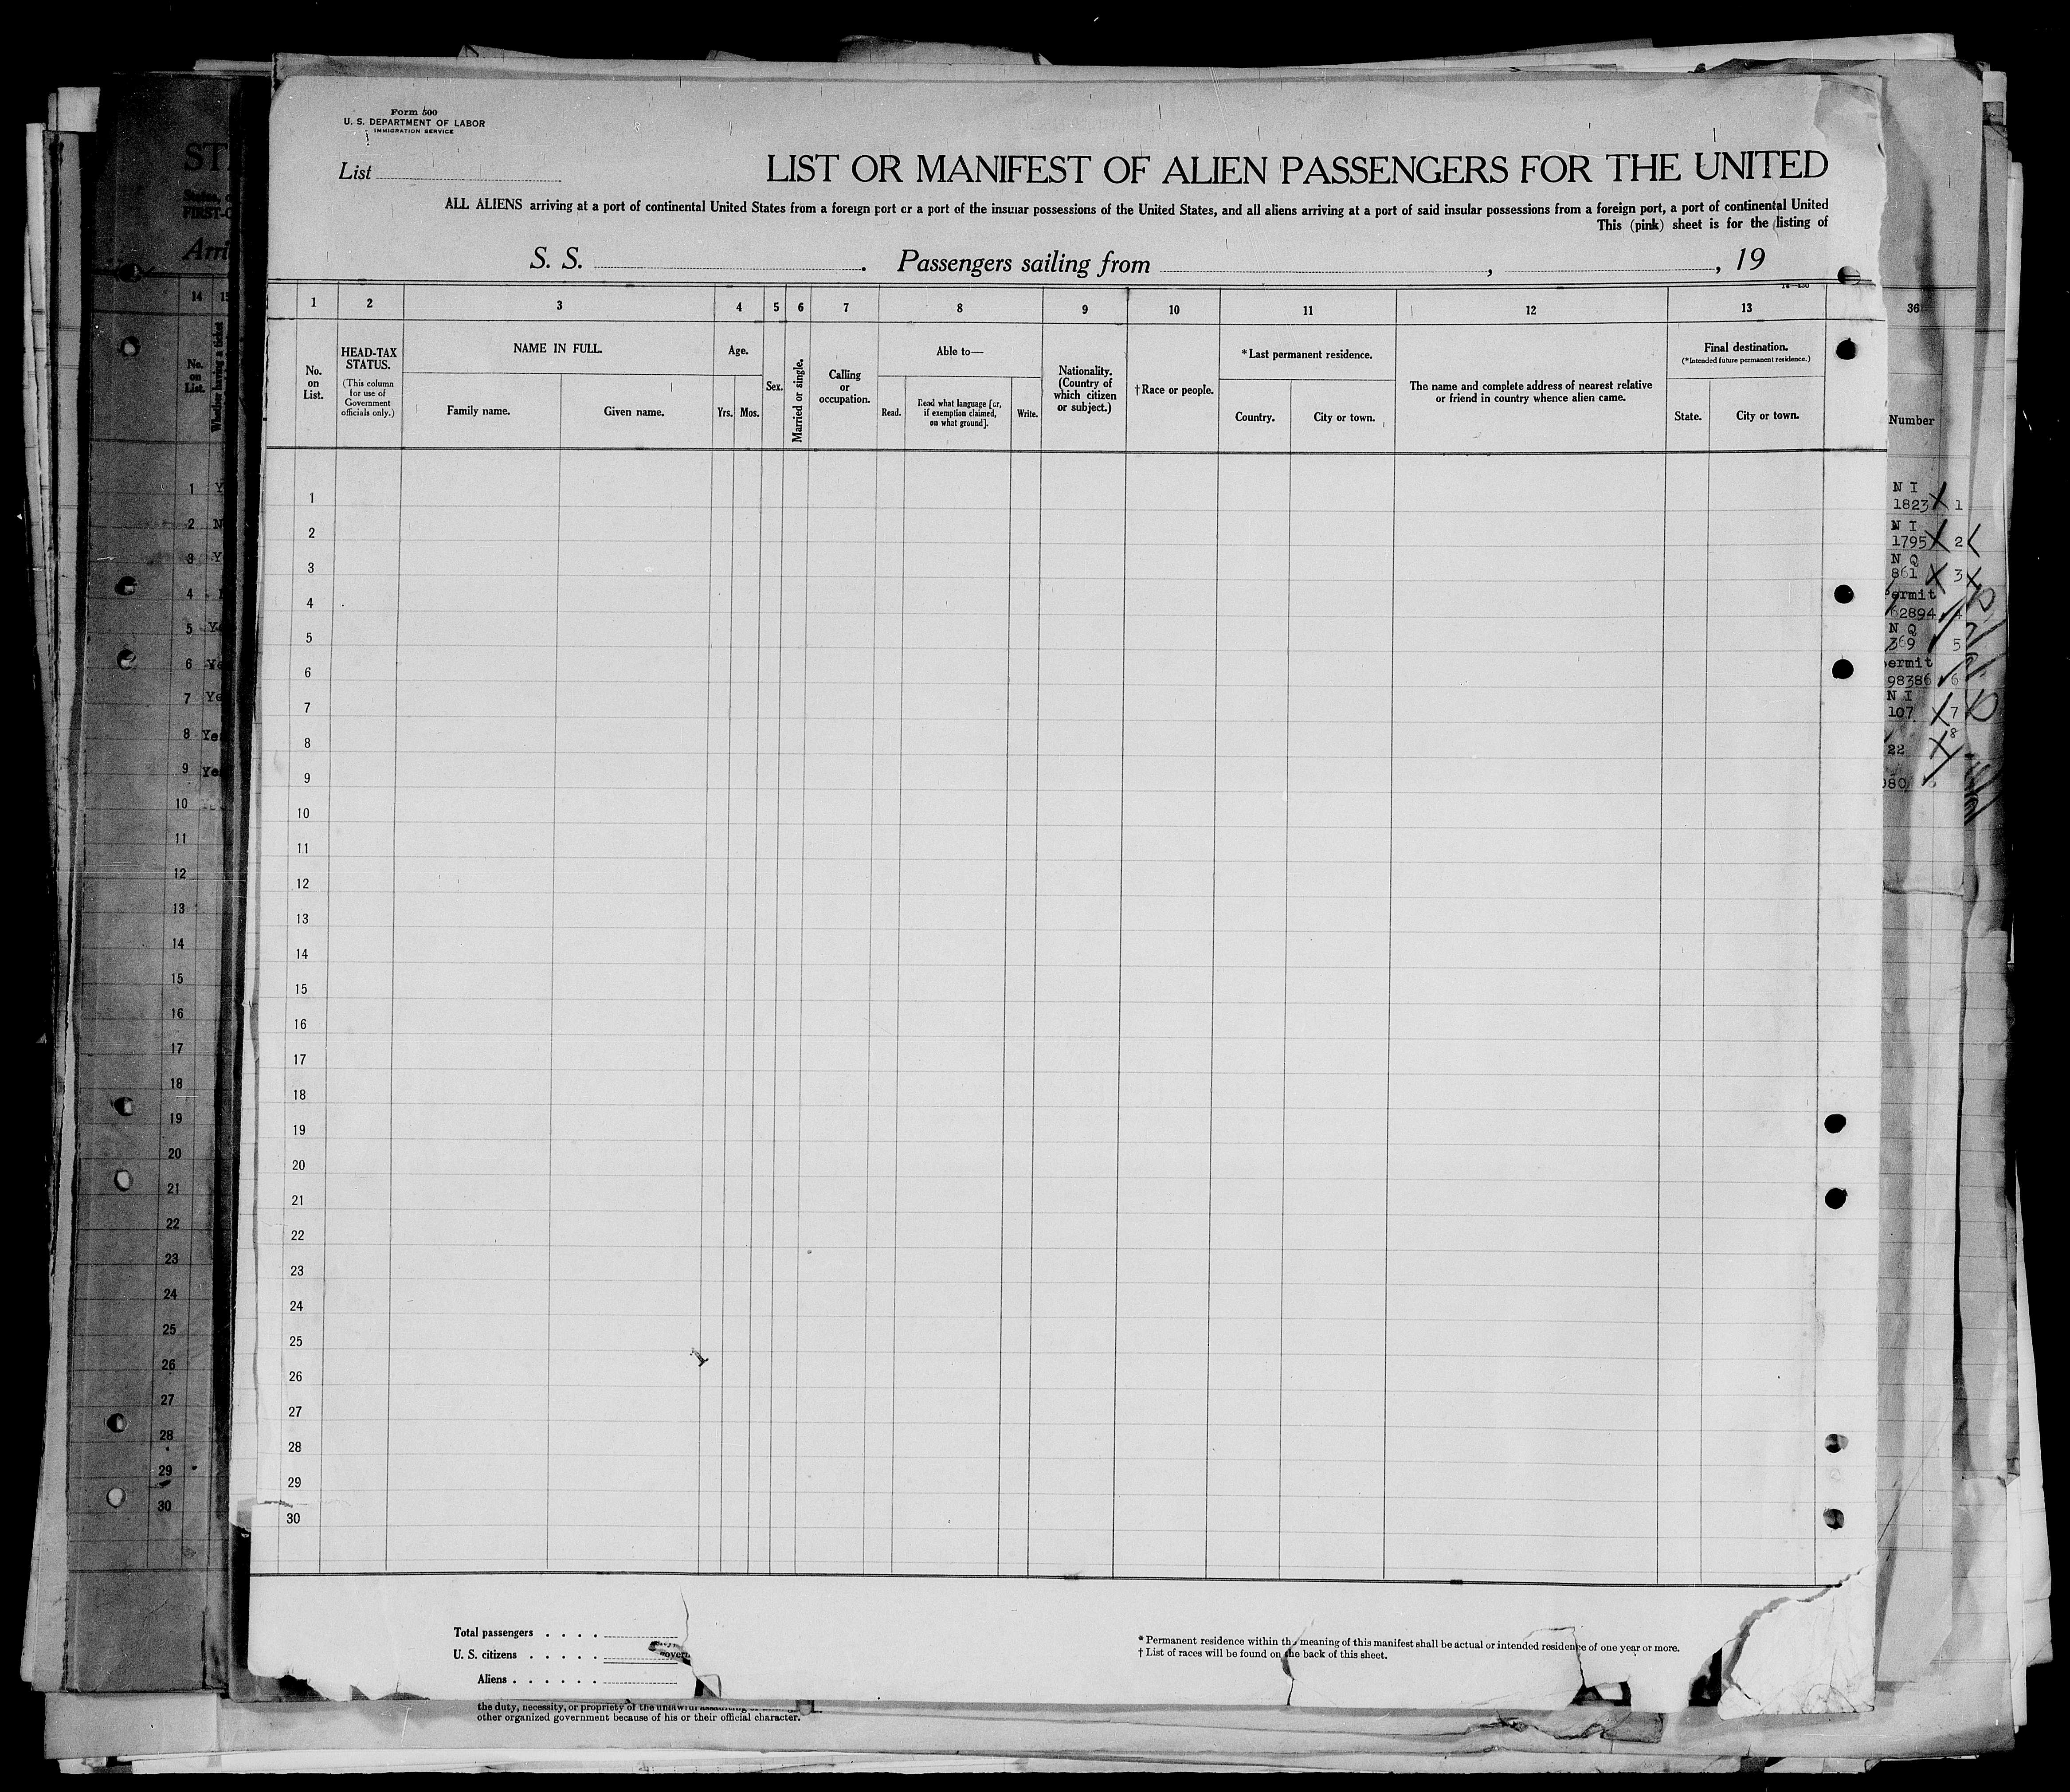 Form 500
U. S. DEPARTMENT OF LABOR
IMMIGRATION SERVICE
List
LIST OR MANIFEST OF ALIEN PASSENGERS FOR THE UNITED
ALL ALIENS arriving at a port of continental United States from a foreign port or a port of the insular possessions of the United States, and all aliens arriving at a port of said insular possessions from a foreign port, a port of continental United
This (pink) sheet is for the listing of
S. S. . Passengers sailing from , , 19
1 2 3 4 5 6 7 8 9 10 11 12 13
No. on List.
HEAD-TAX STATUS.
(This column for use of Government officials only.)
NAME IN FULL.
Family name. Given name.
Age.
Yrs. Mos.
Sex.
Married or single.
Calling or occupation.
Able to—
Read. Read what language [or, if exemption claimed, on what ground]. Write.
Nationality. (Country of which citizen or subject.)
†Race or people.
*Last permanent residence.
Country. City or town.
The name and complete address of nearest relative
or friend in country whence alien came.
Final destination.
(*Intended future permanent residence.)
State. City or town.
1
2
3
4
5
6
7
8
9
10
11
12
13
14
15
16
17
18
19
20
21
22
23
24
25
26
27
28
29
30
Total passengers . . . .
U. S. citizens . . . . .
Aliens . . . . . .
* Permanent residence within the meaning of this manifest shall be actual or intended residence of one year or more.
† List of races will be found on the back of this sheet.
the duty, necessity, or propriety of the unlawful
other organized government because of his or their official character.
ST
FIRST-C
Arri
14 15
No. on List.
Whether having a ticket
1
2
3
4
5
6
7
8
9
10
11
12
13
14
15
16
17
18
19
20
21
22
23
24
25
26
27
28
29
30
36
Number
N I
1823 1
N I
1795 2
N Q
861 3
ermit
62894 4
N Q
369 5
ermit
98386 6
N I
107 7
8
22
980